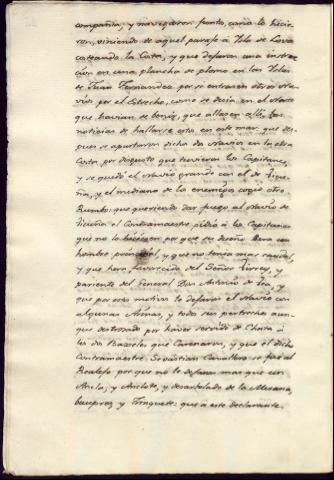 compañia, y navegaron juntos, como lo hicie-
ron, viniendo de aquel paraje à Isla de Lova
costeando la Costa, y que dejaron una instruc-
cion en una plancha de plomo en las Islas
de Juan Fernandez por si entraren otros Na-
vios por el Estrecho, como se decia en el Norte
que havian de venir, que allasen alli las
noticias de hallarse estos en este mar que des-
pues se apartaron dicho dos Navios en la otra
Costa por disgusto que tuvieron los Capitanes,
y se quedò el Navio grande con el de Vicu-
ña, y el mediano de los enemigos cogio otro
Rumbo: que queriendo dar fuego al Navio de
Vicuña el Contramaestre pidiò à los Capitanes
que no lo hiciesen por que su dueño hera un
hombre principal, y que no tenia mas caudal,
y que hera favorecido del Señor Virrey, y
pariente del General Don Antonio de Vea, y
que por este motivo le dejaron el Navio con
algunas Armas, y todos sus pertrechos aun-
que destrosado por haver servido de Chata à
los dos Bajeles que Carenaron, y que el dicho
Contramaestre Sevastian Cavallero se fue al
Realejo por que no le dejaron mas que un
Ancla, y Anclote, y desarbolado de la Mesana,
baupres, y Trinquete: que à este declarante